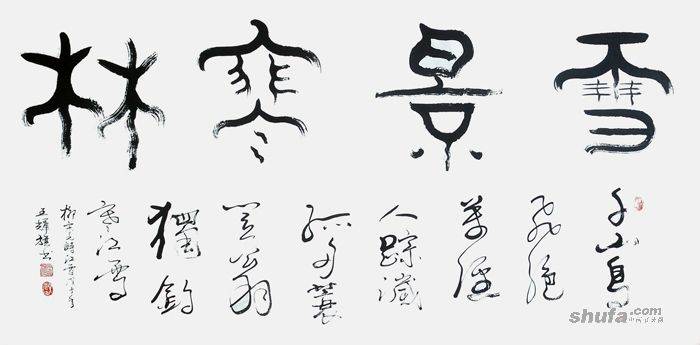 雪景寒林
千山鳥
飛絕
萬徑
人踪滅
孤舟蓑
笠翁
獨釣
寒江雪
柳宗元詩江雪
shufa.com